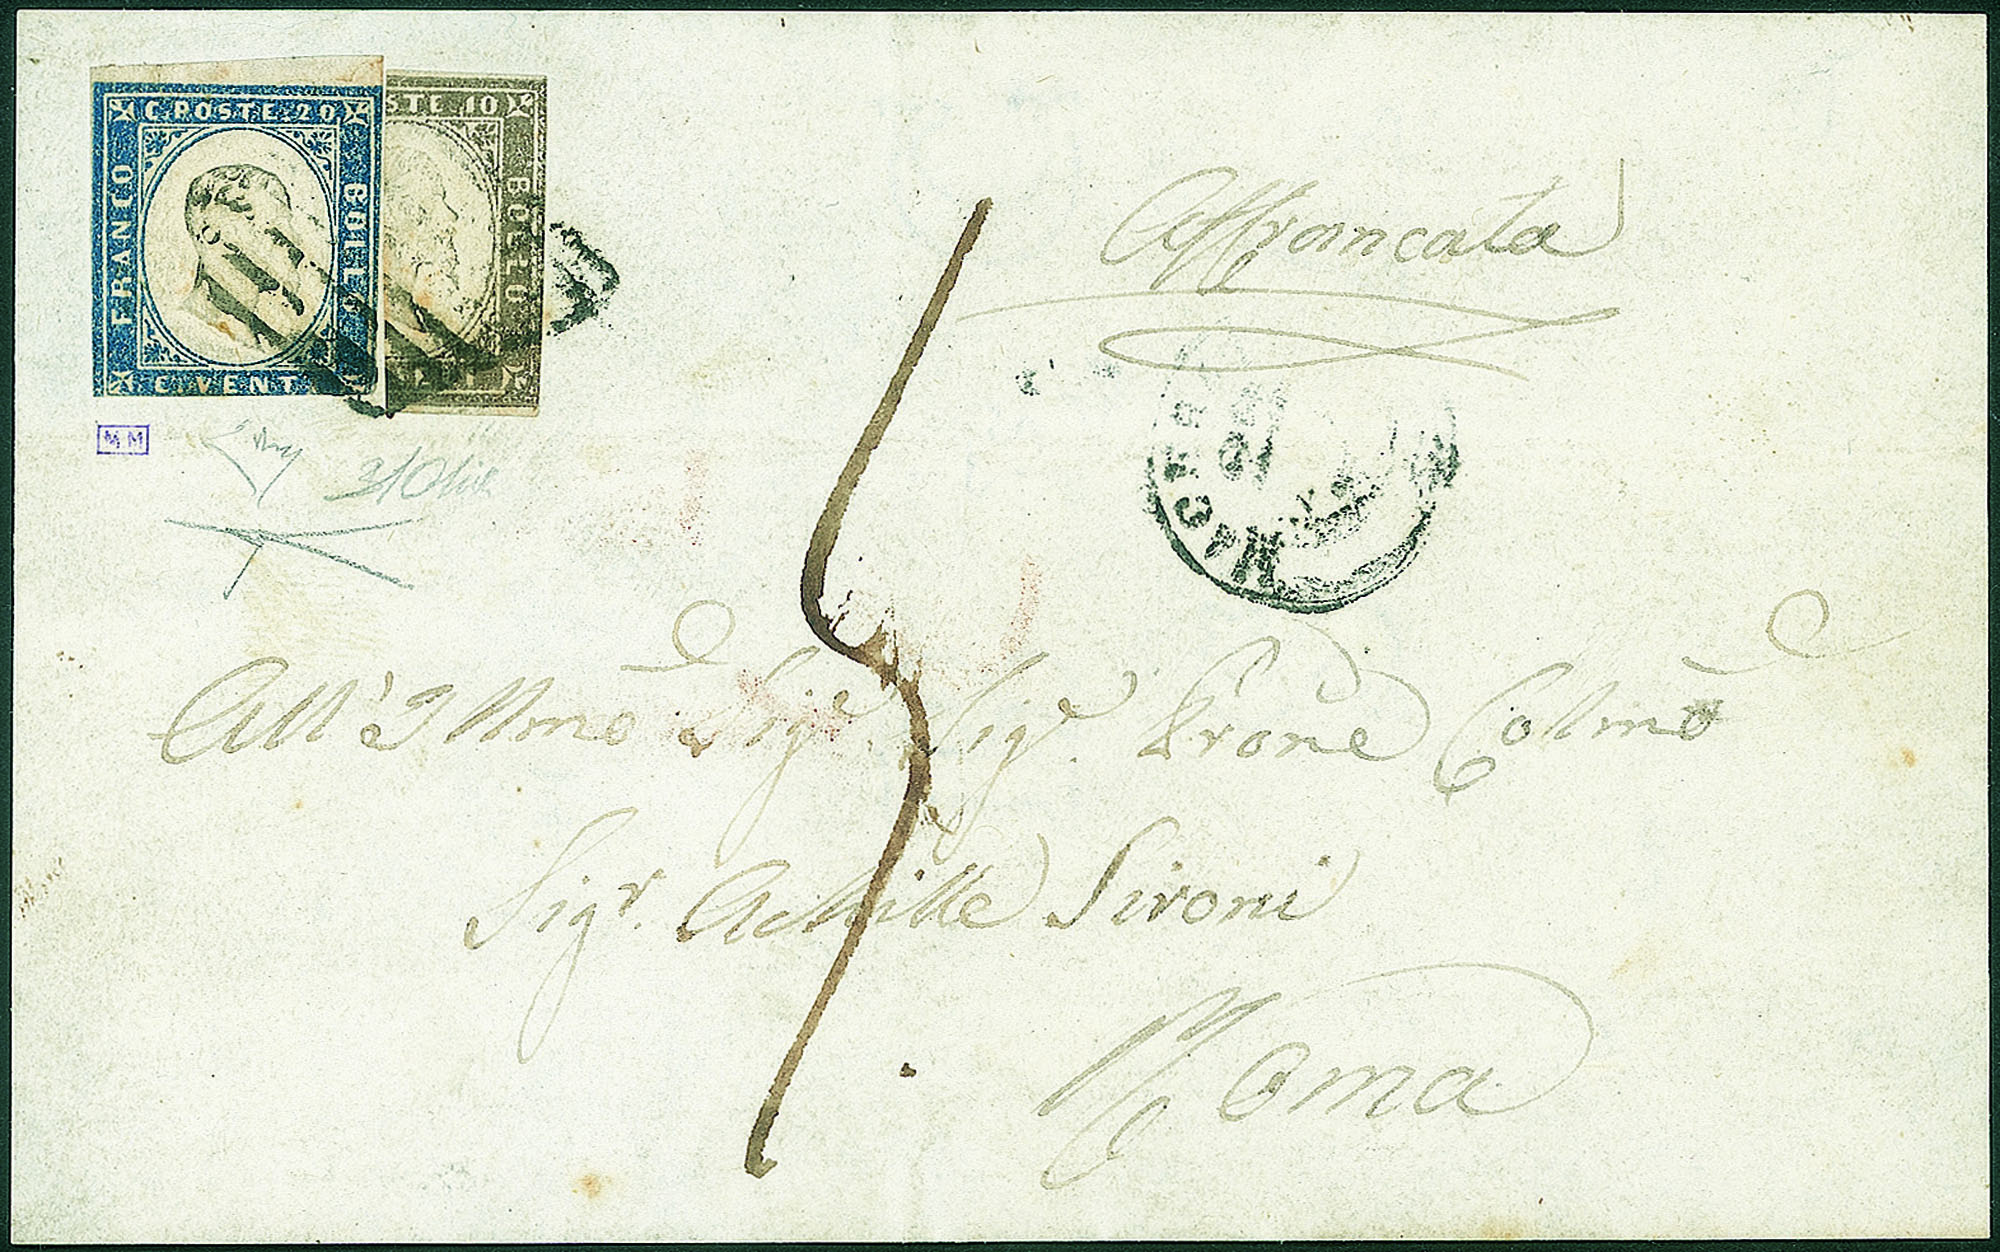 C. POSTE. 20
FRANCO
BOLLO
C. VENTI
STE 10
BOLLO
MM
Affrancata
MACERA
All'Illmo Sigr. Sigr. Prone Colmo
Sigr. Achille Sironi
Roma